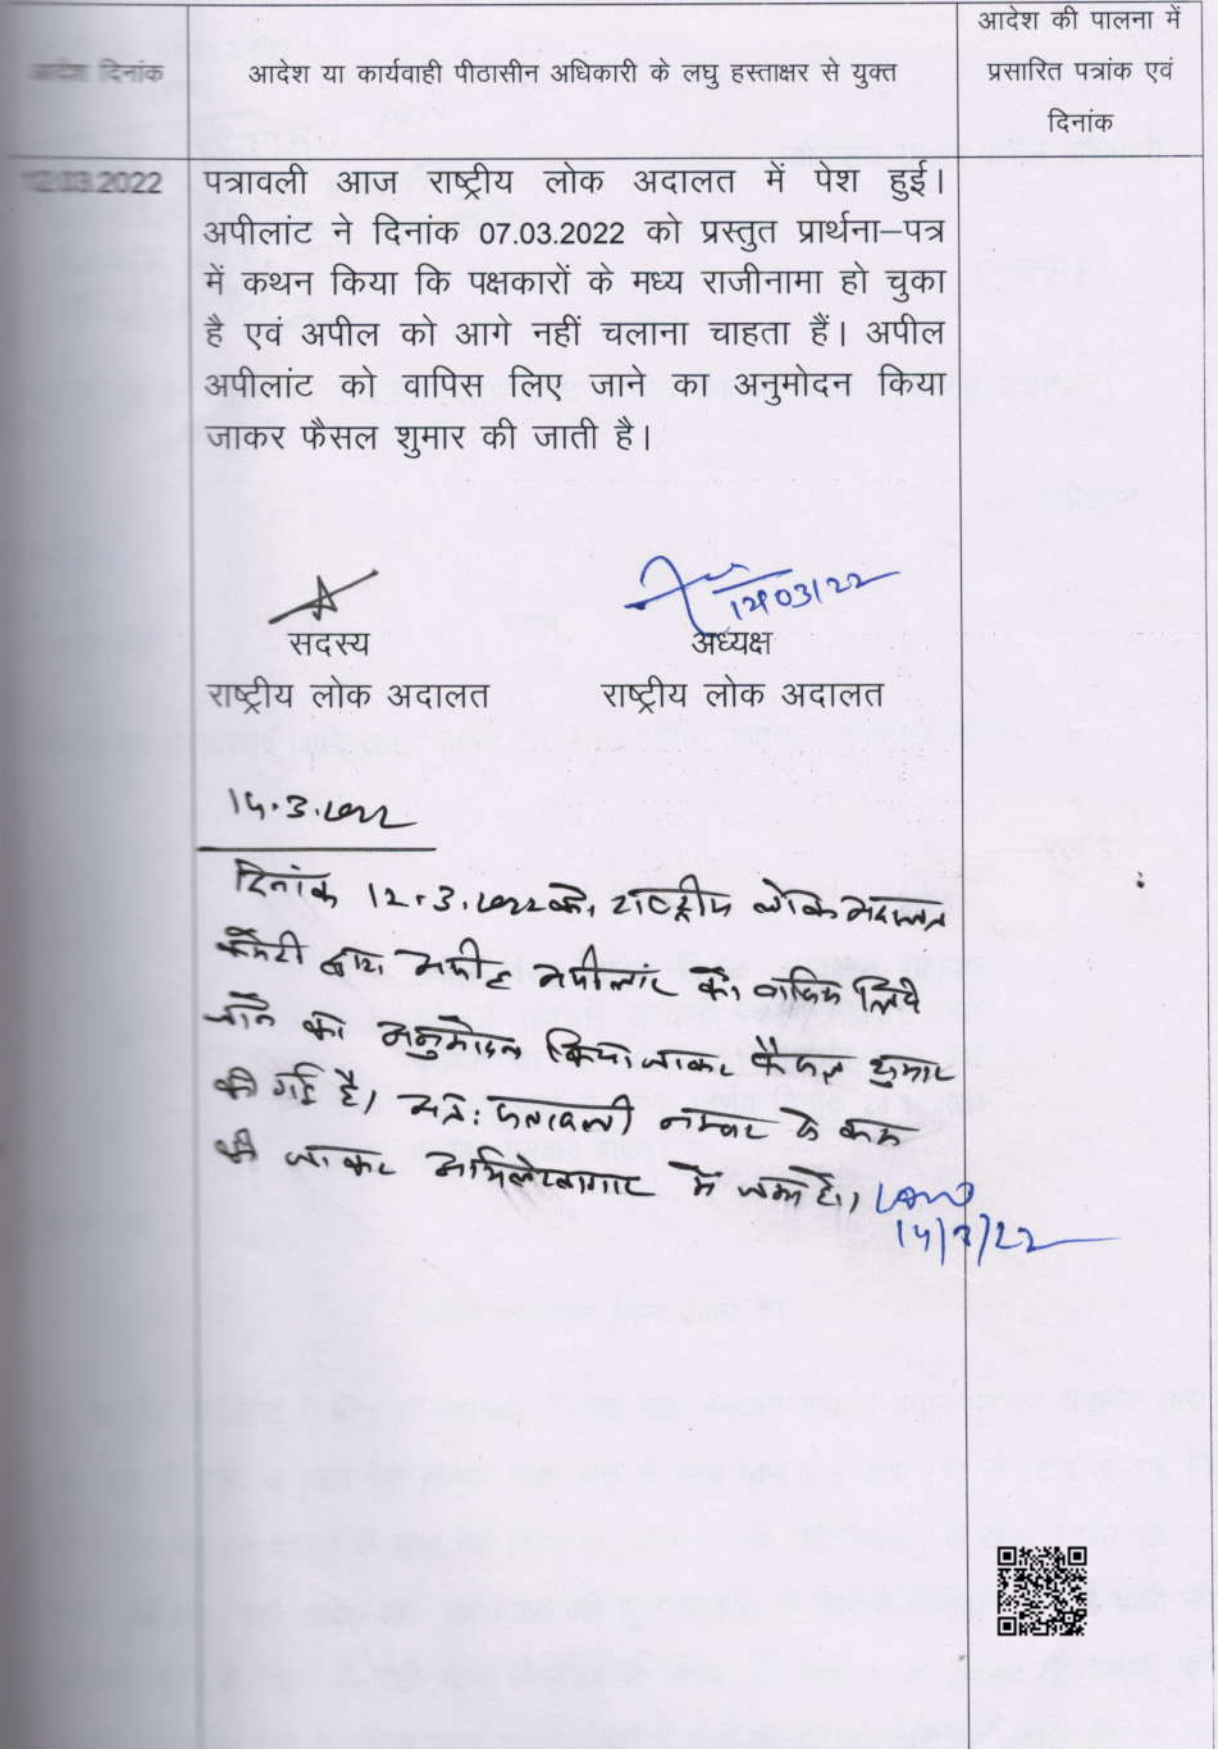 आदेश दिनांक
आदेश या कार्यवाही पीठासीन अधिकारी के लघु हस्ताक्षर से युक्त
आदेश की पालना में
प्रसारित पत्रांक एवं
दिनांक
12.03.2022
पत्रावली आज राष्ट्रीय लोक अदालत में पेश हुई।
अपीलांट ने दिनांक 07.03.2022 को प्रस्तुत प्रार्थना–पत्र
में कथन किया कि पक्षकारों के मध्य राजीनामा हो चुका
है एवं अपील को आगे नहीं चलाना चाहता हैं। अपील
अपीलांट को वापिस लिए जाने का अनुमोदन किया
जाकर फैसल शुमार की जाती है।
12/03/22
सदस्य
अध्यक्ष
राष्ट्रीय लोक अदालत
राष्ट्रीय लोक अदालत
14.3.2022
दिनांक 12.3.2022 को राष्ट्रीय लोक अदालत
द्वारा अपील अपीलांट को वापिस लिये
जाने का अनुमोदन किया जाकर फैसल शुमार
की गई है। अतः पत्रावली नम्बर से कम
की जाकर अभिलेखागार में जमा हो।
14/3/22